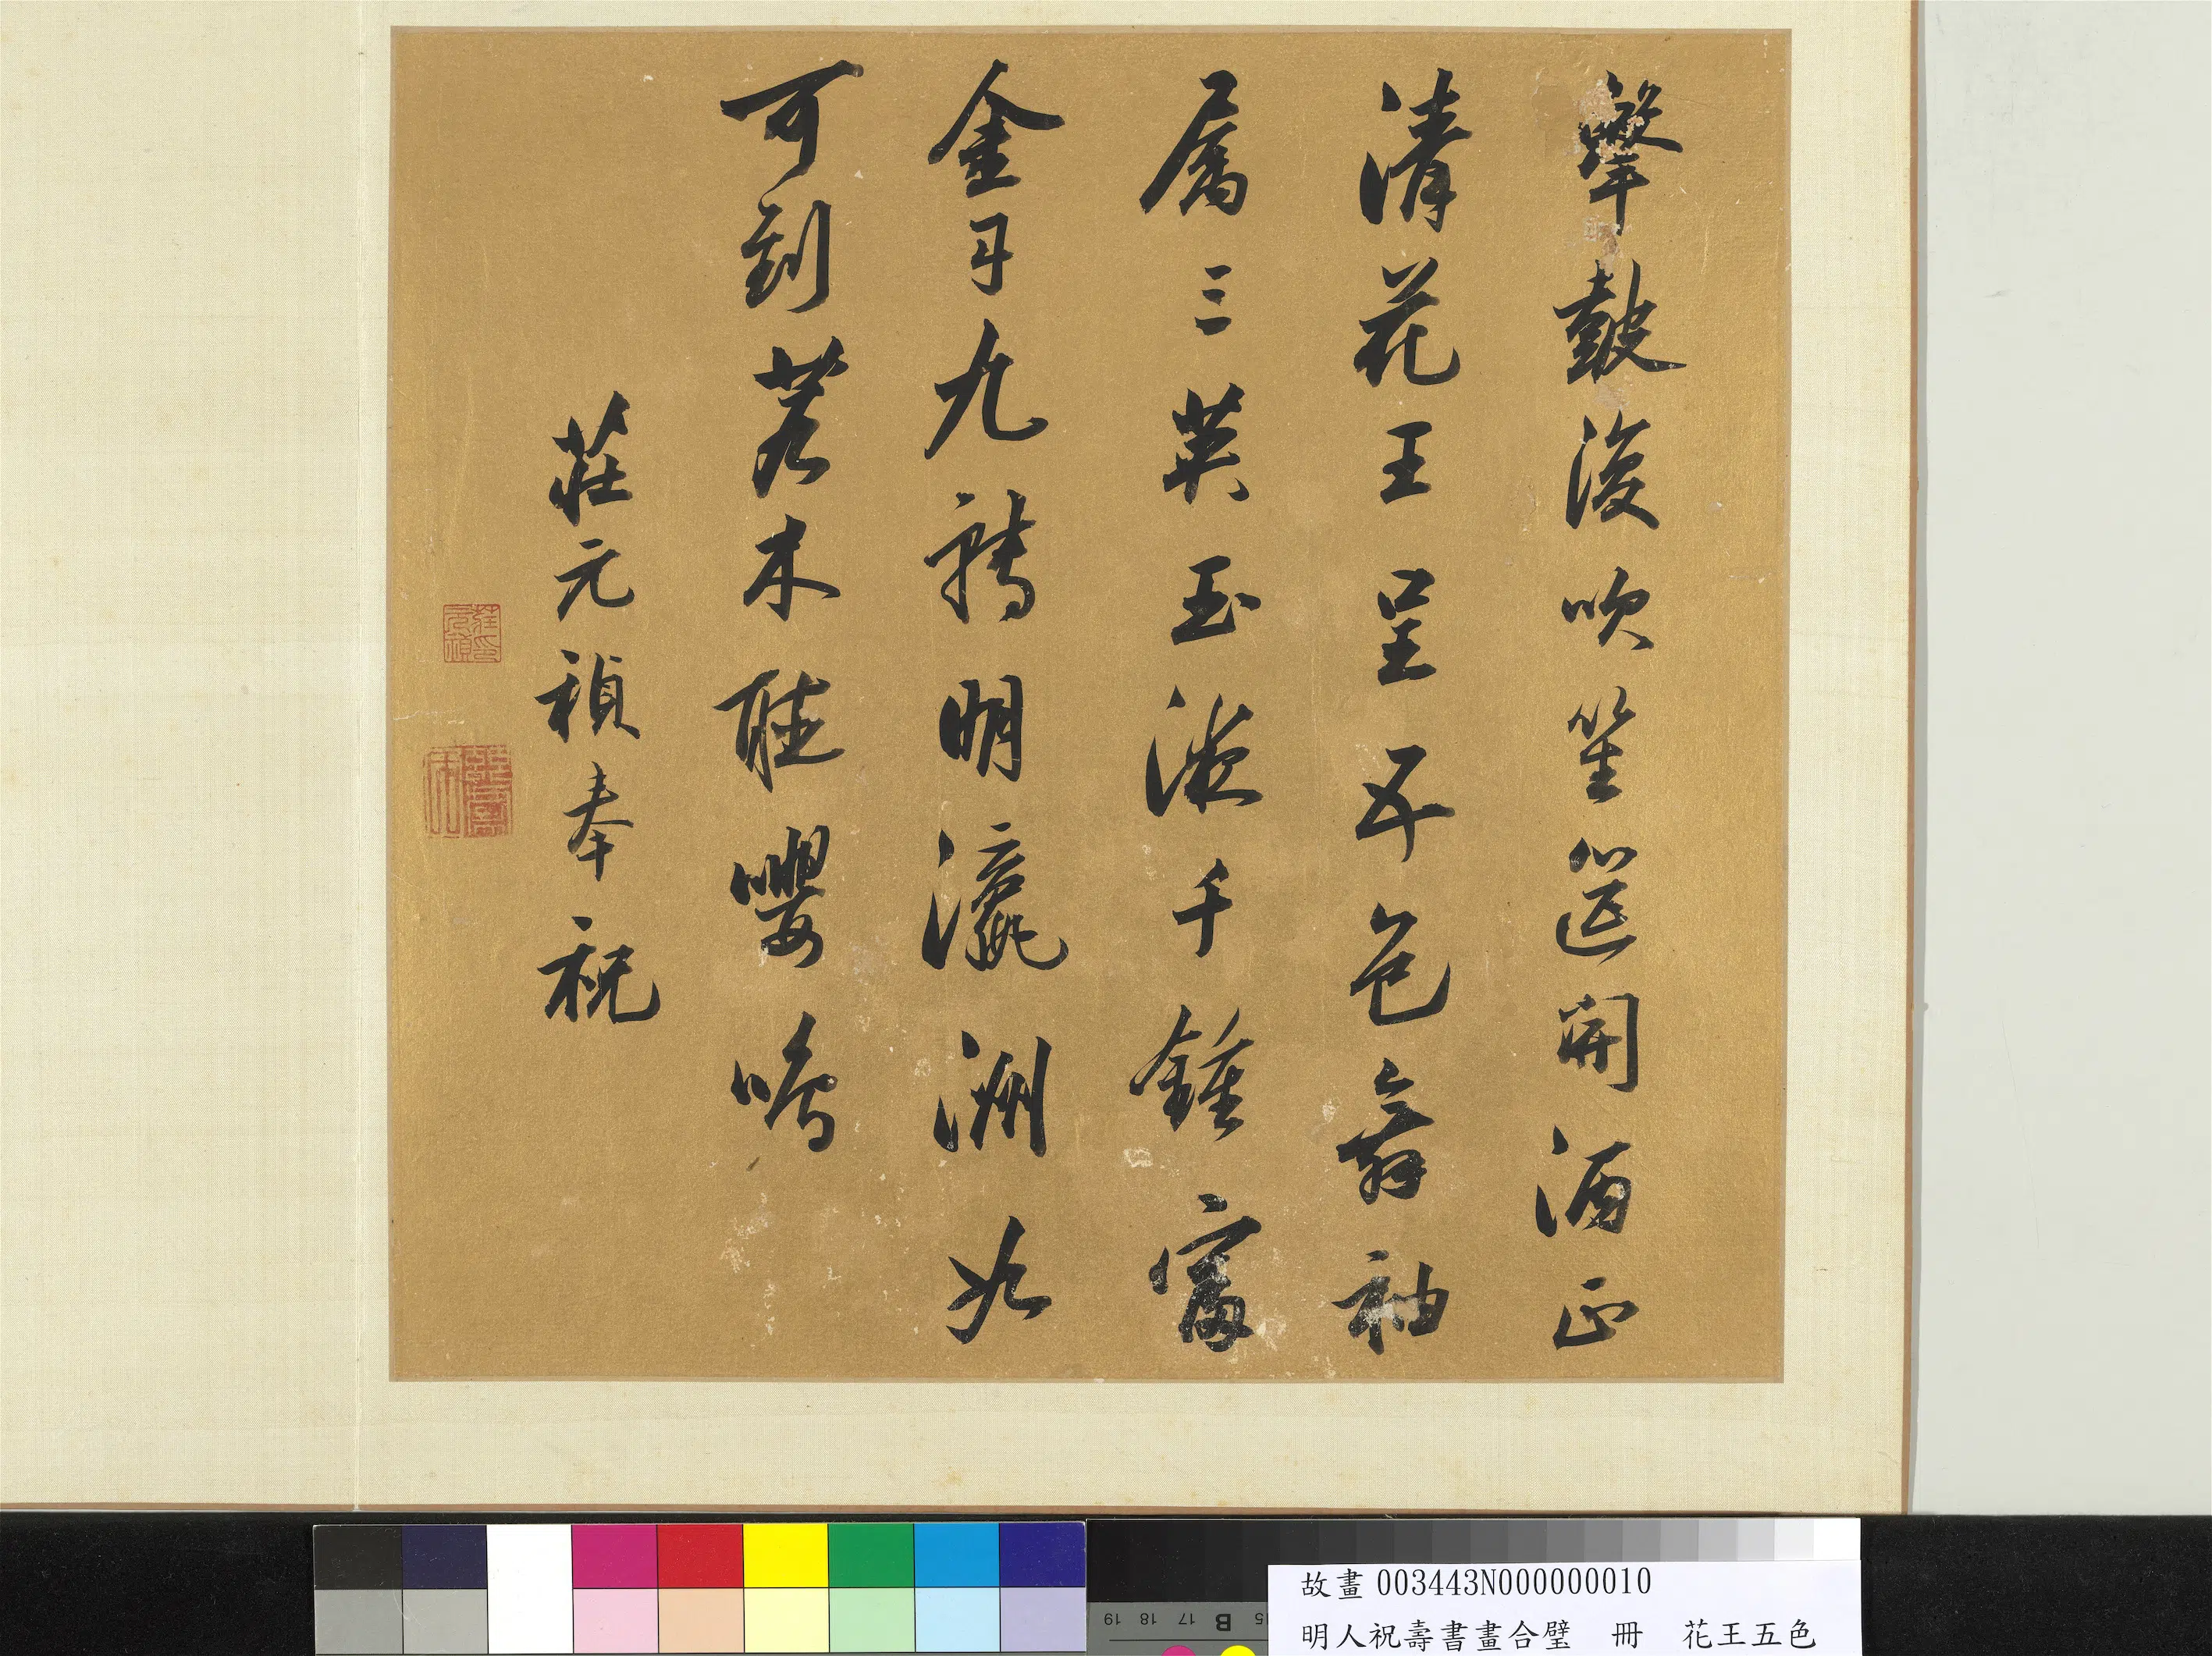 擊鼓後吹笙筵開酒正
清花王呈五色舞袖
屬三英玉液千鍾富
金丹九轉明瀛洲如
可到若木聽嚶鳴
莊元禎奉祝
故畫 003443N000000010
明人祝壽書畫合璧 冊 花王五色
19 18 17 B 15